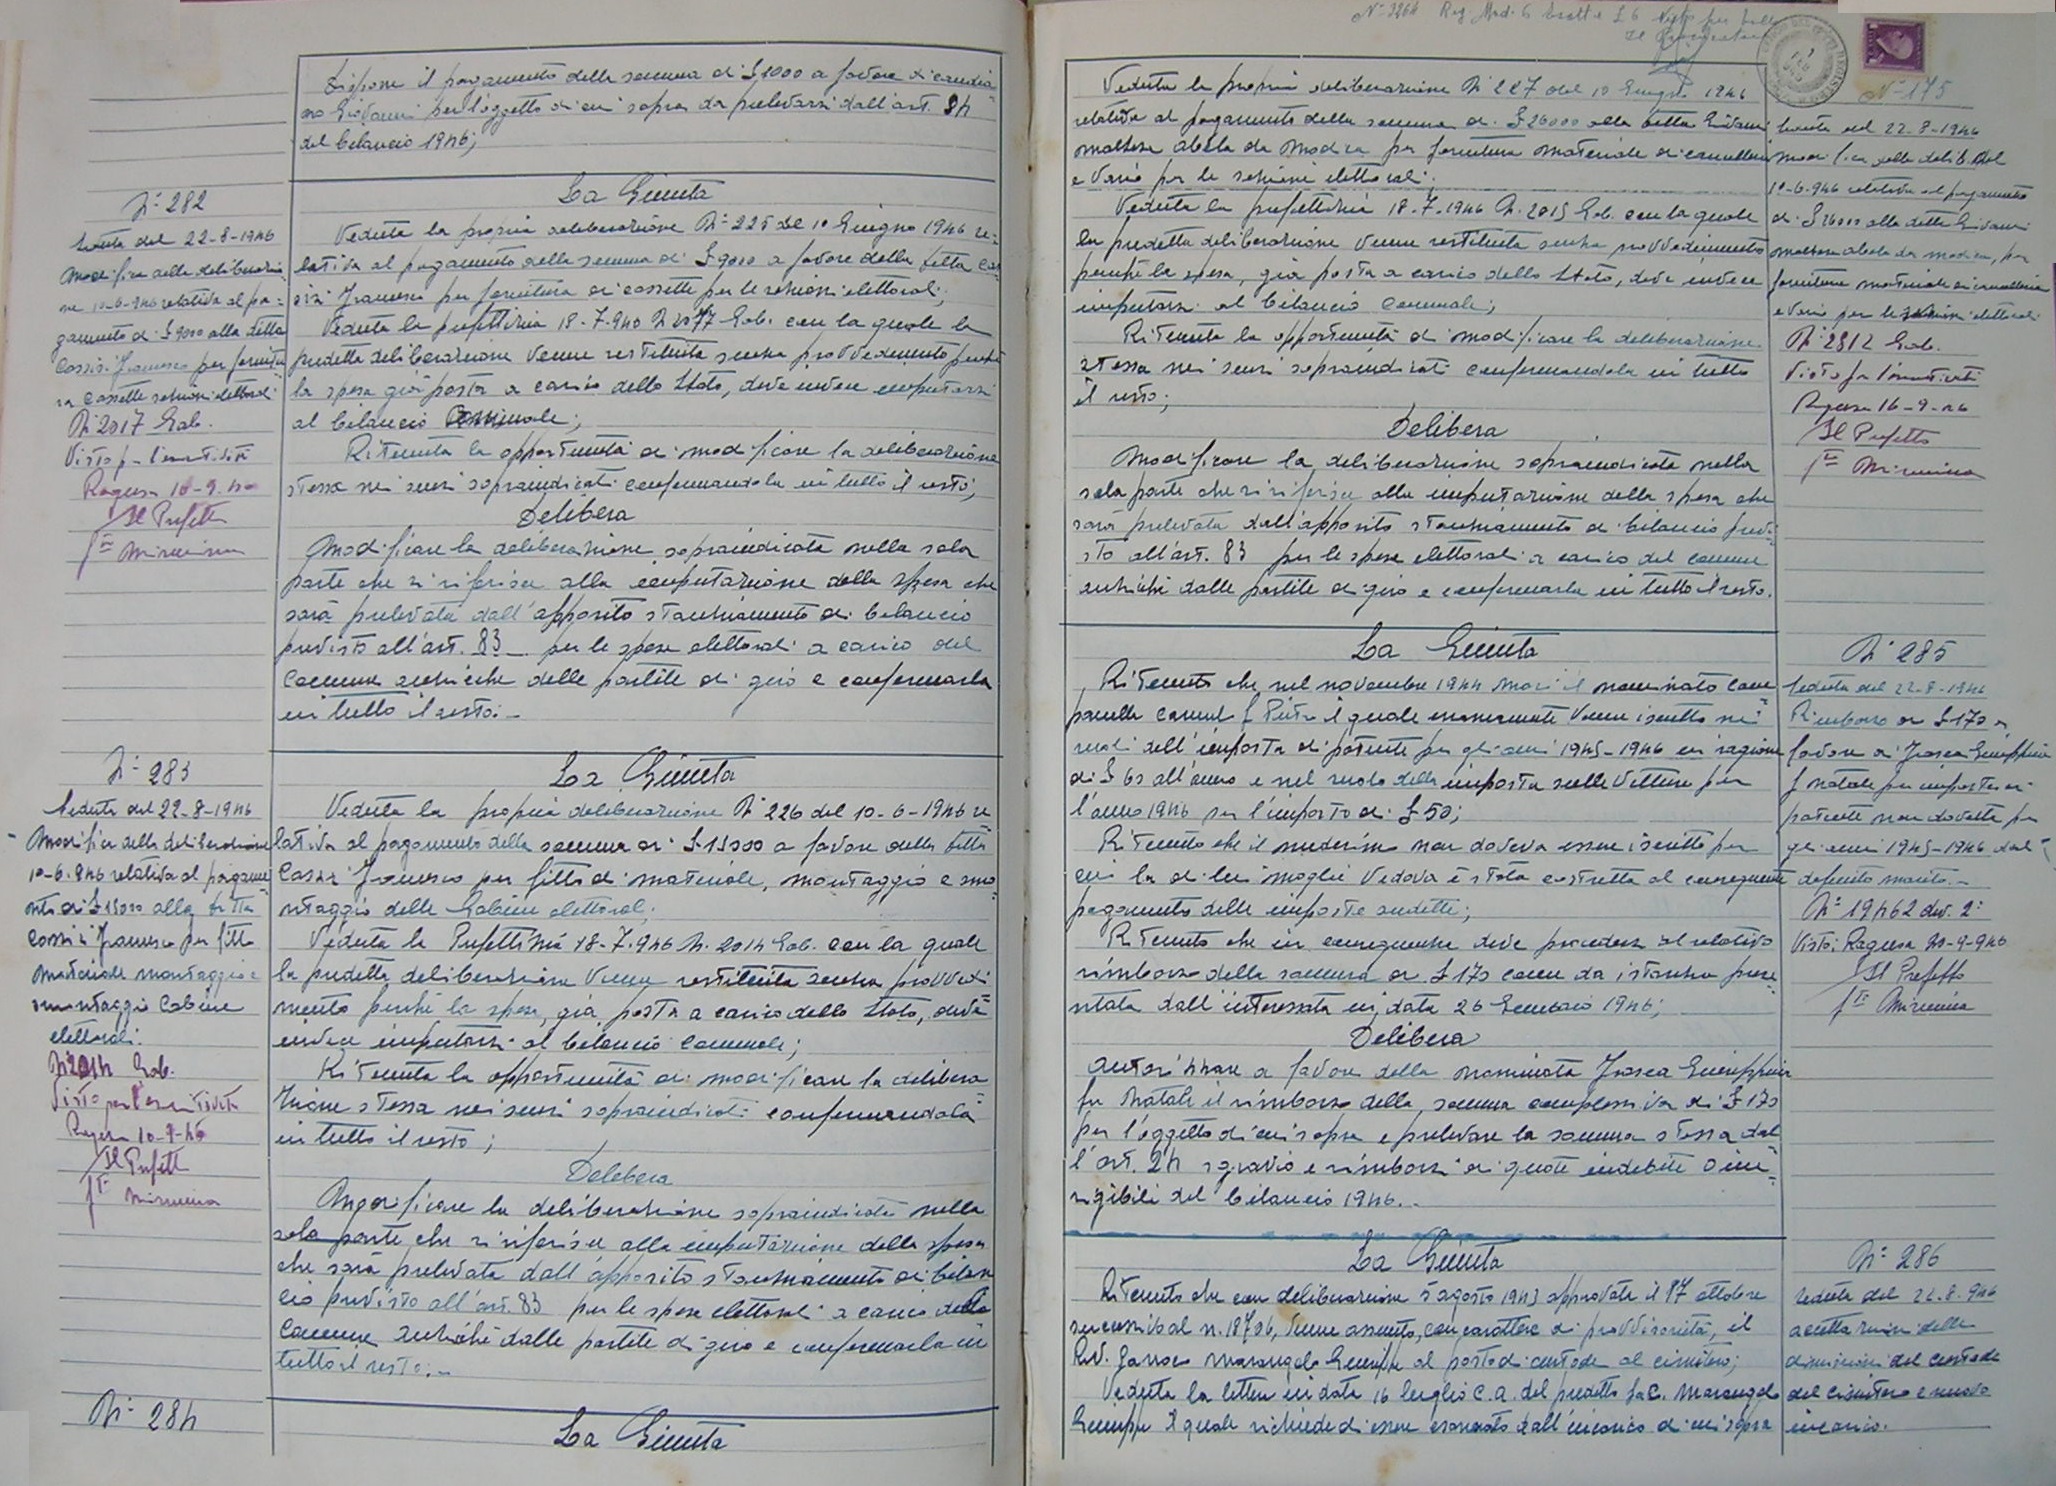 dispone il pagamento della somma di £ 1000 a favore di
Giovanni per l'oggetto di cui sopra da prelevarsi dall'art. 24
del bilancio 1946;
N° 282
Seduta del 22-8-1946
Modifica della deliberazio
ne 10-6-946 relativa al pa=
gamento di £ 9000 alla ditta
Cossisi Francesco per fornitu
ra cassette sezioni elettorali
N. 2017 Gab.
Visto p. l'esecutività
Ragusa 10-9-46
Il Prefetto
La Giunta
Veduta la propria deliberazione N° 225 del 10 Giugno 1946 re=
lativa al pagamento della somma di £ 9000 a favore della ditta
Francesco per fornitura di cassette per le sezioni elettorali;
Veduta la prefettizia 18-7-946 N 2017 Gab. con la quale la
predetta deliberazione venne restituita senza provvedimento perché
la spesa già posta a carico dello Stato, deve invece imputarsi
al bilancio Comunale;
Ritenuta la opportunità di modificare la deliberazione
stessa nei sensi sopraindicati confermandola in tutto il resto;
Delibera
Modificare la deliberazione sopraindicata nella sola
parte che si riferisce alla imputazione della spesa che
sarà prelevata dall'apposito stanziamento di bilancio
previsto all'art. 83 per le spese elettorali a carico del
Comune anziché dalle partite di giro e confermarla
in tutto il resto.-
N° 283
Seduta del 22-8-1946
Modifica della deliberazione
10-6-946 relativa al pagame
nto di £ 15000 alla ditta
Francesco per fitto
materiale montaggio e
smontaggio Cabine
elettorali.
N 2014 Gab.
Visto per l'esecutività
Ragusa 10-9-46
Il Prefetto
La Giunta
Veduta la propria deliberazione N 226 del 10-6-1946 re
lativa al pagamento della somma di £ 15000 a favore della ditta
Francesco per fitto di materiale, montaggio e smo
ntaggio delle Cabine elettorali;
Veduta la Prefettizia 18-7-946 N. 2014 Gab. con la quale
la predetta deliberazione venne restituita senza provvedi
mento perché la spesa, già posta a carico dello Stato, deve
invece imputarsi al bilancio Comunale;
Ritenuta la opportunità di modificare la delibera
zione stessa nei sensi sopraindicati confermandola
in tutto il resto;
Delibera
Modificare la deliberazione sopraindicata nella
sola parte che si riferisce alla imputazione della spesa
che sarà prelevata dall'apposito stanziamento di bilan
cio previsto all'art. 83 per le spese elettorali a carico del
Comune anziché dalle partite di giro e confermarla in
tutto il resto.-
N° 284
La Giunta
N° 3264 Reg. Mod. 6
N° 175
Veduta la propria deliberazione N 227 del 10 Giugno 1946
relativa al pagamento della somma di £ 26000 alla ditta Giovanni
Maltese Abela da Modica per fornitura materiale di cancelleria
e vario per le sezioni elettorali;
Veduta la prefettizia 18-7-1946 N. 2015 Gab. con la quale
la predetta deliberazione venne restituita senza provvedimento
perché la spesa, già posta a carico dello Stato, deve invece
imputarsi al bilancio Comunale;
Ritenuta la opportunità di modificare la deliberazione
stessa nei sensi sopraindicati confermandola in tutto
il resto;
Delibera
Modificare la deliberazione sopraindicata nella
sola parte che si riferisce alla imputazione della spesa che
sarà prelevata dall'apposito stanziamento di bilancio previ=
sto all'art. 83 per le spese elettorali a carico del comune
anziché dalle partite di giro e confermarla in tutto il resto.
Seduta del 22-8-1946
Modifica della delib. del
10-6-946 relativa al pagamento
di £ 26000 alla ditta Giovanni
Maltese Abela da Modica, per
fornitura materiale di cancelleria
e vario per le sezioni elettorali
N 2812 Gab.
Visto per l'esecutività
Ragusa 16-9-46
Il Prefetto
La Giunta
Ritenuto che nel novembre 1944 morì il nominato Cam
panella Carmelo f Pietro il quale erroneamente venne iscritto nei
ruoli dell'imposta di patente per gli anni 1945-1946 in ragione
di £ 60 all'anno e nel ruolo della imposta sulle vetture per
l'anno 1946 per l'importo di £ 50;
Ritenuto che il medesimo non doveva essere iscritto per
cui la di lui moglie Vedova è stata costretta al conseguente
pagamento delle imposte suddette;
Ritenuto che in conseguenza deve procedersi al relativo
rimborso della somma di £ 170 come da istanza prese
ntata dall'interessata in data 26 Gennaio 1946;
Delibera
Autorizzare a favore della nominata Frasca Giuseppina
fu Natale il rimborso della somma complessiva di £ 170
per l'oggetto di cui sopra e prelevare la somma stessa dal
l'art. 24 sgravio e rimborsi di quote indebite o ine
sigibili del bilancio 1946.-
N° 285
Seduta del 22-8-1946
Rimborso di £ 170 a
favore di Frasca Giuseppina
f Natale per imposte di
patente non dovute per
gli anni 1945-1946 dal
defunto marito.-
N° 19462 div. 2ª
Visto: Ragusa 20-9-946
Il Prefetto
La Giunta
Ritenuto che con deliberazione 5 agosto 1943 approvata il 27 ottobre
successivo al n. 18706, venne assunto, con carattere di provvisorietà, il
Rev. Marangolo Giuseppe al posto di custode al cimitero;
Veduta la lettera in data 16 luglio c.a. del predetto Sac. Marangolo
Giuseppe il quale richiede di essere esonerato dall'incarico di cui sopra
N° 286
Seduta del 22.8.946
accettazione delle
dimissioni del custode
del Cimitero e nuovo
incarico.